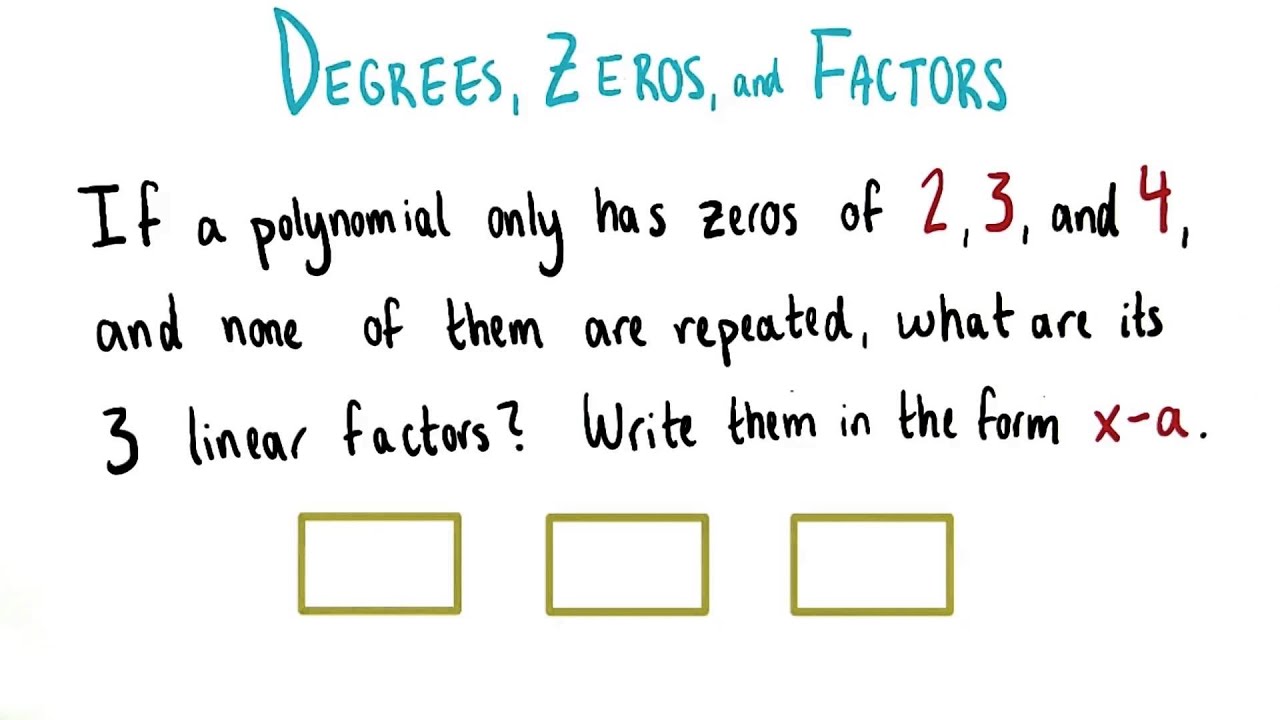 DEGREES, ZEROS, and FACTORS
If a polynomial only has zeros of 2, 3, and 4,
and none of them are repeated, what are its
3 linear factors? Write them in the form x-a.